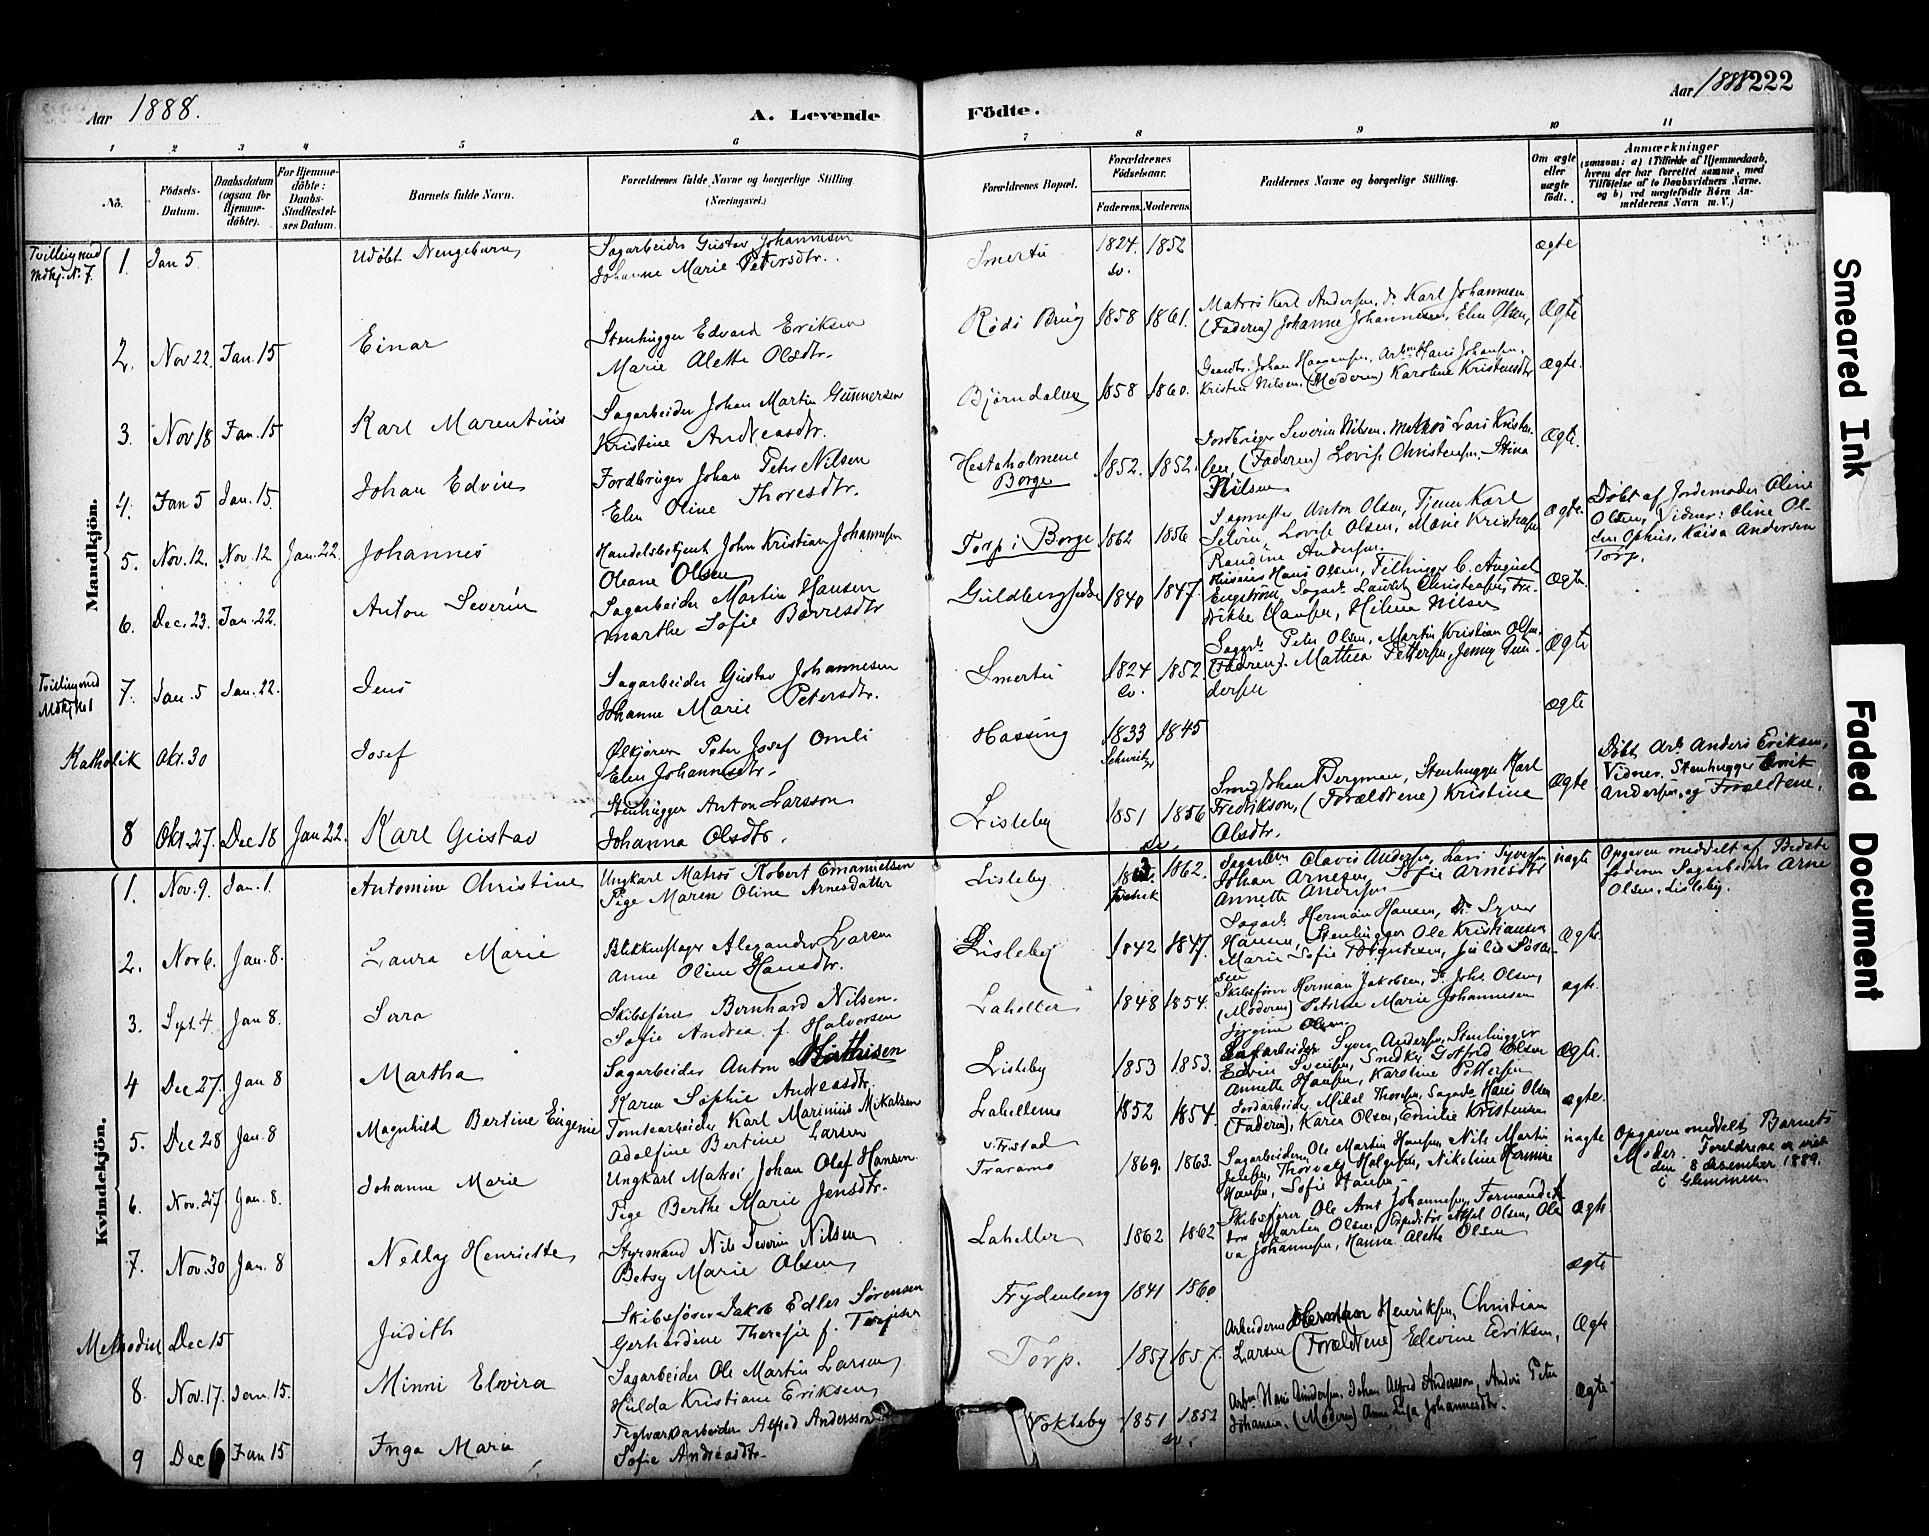 Aar 1888.
A. Levende
Födte.
Aar 1888 222
1 2 3 4 5 6 7 8 9 10 11
No.
Födsels-
Datum.
Daabsdatum
(ogsaa for
Hjemme-
döbte).
For Hjemme-
döbte:
Daabs-
Stadfæstel-
ses Datum.
Barnets fulde Navn.
Forældrenes fulde Navne og borgerlige Stilling
(Næringsvei.)
Forældrenes Bopæl.
Forældrenes
Födselsaar.
Faderens. Moderens.
Faddernes Navne og borgerlige Stilling.
Om ægte
eller
uægte
födt.
Anmærkninger
(saasom: a) i Tilfælde af Hjemmedaab,
hvem der har forrettet samme, med
Tilföielse af to Daabsvidners Navne,
og b) ved uægtefödte Börn An-
melderens Navn m. V.)
Mandkjön.
Tvilling med
Mdkj. N. 7.
1. Jan 5 Udöbt Drengebarn
Sagarbeider Gustav Johannesen
Johanne Marie Petersdtr.
Smertu 1824 sv. 1852 ægte
2. Nov 22. Jan. 15 Einar
Stenhugger Edvard Eriksen
Marie Alette Olsdtr.
Röds Brug 1858 1861.
Matros Karl Andersen, do Karl Johannesen
(Faderen) Johanne Johannesen, Elen Olsen,
Ægte
3. Nov 18 Jan. 15 Karl Marentius
Sagarbeider Johan Martin Gunnersen
Kristine Andreasdtr.
Björndalen 1858 1860.
Kristen Nilsen, (Moderen) Karoline Kristensdtr
ægte.
4. Jan 5 Jan. 15. Johan Edvin
Jordbruger Johan Peter Nilsen
Elen Oline Thoresdtr.
Hesteholmene
Borge
1852. 1852.
Jordbruger Severin Nilsen, Matros Lars Kristen-
sen, (Faderen) Lovise Christensen, Stina
Nilsen
Ægte.
5. Nov. 12. Nov. 12 Jan. 22. Johannes
Handelsbetjent John Kristian Johannesen
Oleane Olsen
Torp i Borge 1862 1856
Sagmester Anton Olsen, Tjener Karl
Selvin, Lovise Olsen, Marie Kristensen
Randine Andersen.
Ægte.
Döbt af Jordemoder Oline
Olsen, Vidner: Oline Ol-
sen Ophus, Kaisa Andersen
Torp.
6. Dec. 23. Jan. 22. Anton Severin
Sagarbeider Martin Hansen
Marthe Sofie Borresdtr
1840 1847.
Engström, Sagarb. Lauritz Christensen, Fre-
drikke Hansen, Helene Nilsen
Ægte.
Tvilling med
Mdkj No 1
7. Jan. 5 Jan. 22. Jens
Sagarbeider Gustav Johannesen
Johanne Marie Petersdtr.
Smertu 1824 sv. 1852
Sagarb. Peter Olsen, Martin Kristian Olsen,
(Faderen). Mathea Pettersen, Jenny Gun-
dersen
Ægte
Katholik Okt. 30 Josef
Ölkjörer Peter Josef Omli
Elen Johannesdtr.
Hassing 1833 Schweitz, 1845 ægte
8 Okt. 27. Dec 18 Jan 22. Karl Gustav
Stenhugger Anton Larsson
Johanna Olsdtr.
Lisleby 1851 1856
sv.
Smed Johan Bergman, Stenhugger Karl
Fredrikson, (Forældrene) Kristine
Olsdtr.
Ægte
Döbt, Arb. Anders Eriksen,
Vidner, Stenhugger
Andersen, og Forældrene.
Kvindekjön.
1. Nov. 9. Jan. 1. Antomine Christine
Ungkarl Matros Robert Emanuelsen
Pige Maren Oline Arnesdatter
Lisleby 1862.
Johan Arnesen, Sofie Arnesdtr
Annette Andersen
uægte
Opgaven meddelt af Bedste
faderen Sagarbeider Arne
Olsen, Lisleby.
2. Nov 6. Jan. 8. Laura Marie
Blikkenslager Alexander Larsen
Anne Oline Hansdtr.
Lisleby 1842 1847.
Sagarb. Herman Hansen, do Syver
Hansen, Stenhugger Ole Kristiansen,
Marie Sofie Torgersen, Julie Soren-
sen
Ægte.
3. Sept. 4. Jan 8. Sara
Skibsförer Bernhard Nilsen.
Sofie Andrea f. Halvorsen
Lahellen 1848 1854.
Skibsförer Herman Jakobsen, do Johs. Olsen,
(Moderen) Petrine Marie Johannesen
Jörgine Olsen
ægte.
4 Dec 27. Jan 8 Martha
Sagarbeider Anton Mathisen
Karen Sophie Andreasdtr.
Lisleby 1853 1853.
Sagarbeider Syver Andersen, Stenhugger
Edvin Svensen, Snedker Gotfred Olsen
Annette Hansen, Karoline Pettersen
Ægte.
5. Dec 28 Jan. 8 Magnhild Bertine Eugenie
Tomtearbeider Karl Marinius Mikalsen
Adolfine Bertine Larsen
Lahellerne 1852 1854.
Jordarbeider Mikal Thoresen, Sagarb. Hans Olsen
(Faderen), Karen Olsen, Emilie Kristensen
Ægte.
6. Nov. 27 Jan. 8. Johanne Marie
Ungkarl Matros Johan Olaf Hansen
Pige Berthe Marie Jensdtr.
Traramo
1869. 1863.
Sagarbeiderne Ole Martin Hansen, Nils Martin
Jensen, Thorvald Helgesen, Nikoline Hermine
Hansen, Sofie Hansen.
uægte
Opgaven meddelt Barnets
Moder. Foreldrene er viet
den 8 desember 1889.
i Glemmen
7. Nov. 30 Jan. 8 Nelly Henriette
Styrmand Nils Severin Nilsen
Betsy Marie Olsen
Lahellen 1862 1862
Skibsförer Ole Arnt Johannesen, Formand
Martin Olsen, Expeditör Axel Olsen, Ole
va Johannesen, Hanna Alette Olsen
Ægte
Methodist Dec 15 Judith
Skibsförer Jakob Edler Sörensen
Gerhardine Theresie f. Terjesen
Frydenberg 1841 1860 ægte
8. Nov. 17. Jan. 15. Minni Elvira
Sagarbeider Ole Martin Larsen,
Hulda Kristiane Eriksen,
Torp. 1857 1857.
Arbeiderne Herman Henriksen, Christian
Larsen (Forældrene) Elevine Eriksen,
Ægte
9 Dec 6 Jan 15 Inga Marie
Teglværksarbeider Alfred Andersson
Sofie Andreasdtr.
Nokleby 1851 1852
sv.
Arbm Hans Gundersen, Johan Alfred Andersson, Anders Peter
Johansen, (Moderen) Anna Lisa Johannesdtr.
Ægte
Smeared Ink
Faded Document